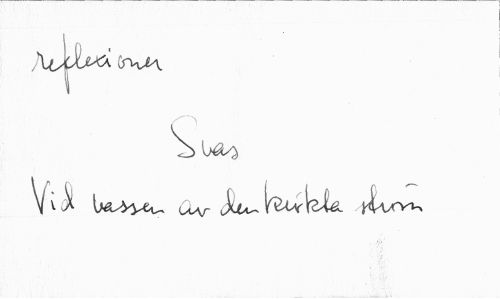 reflexioner
Svas
Vid vassen av den kvickta ström